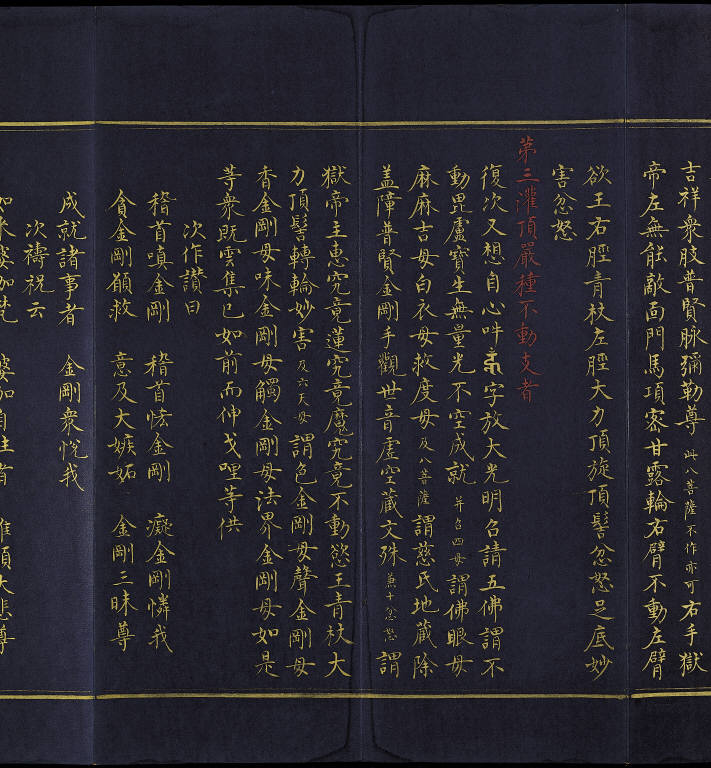 吉祥衆肢普賢脉彌勒尊 此八菩薩不作亦可 右手獄
帝左無能敵面門馬項密甘露輪右臂不動左臂
欲王右脛青杖左脛大力頂旋頂髻忿怒足底妙
害忿怒
第三灌頂嚴種不動支者
復次又想自心吽字放大光明召請五佛謂不
動毘盧寶生無量光不空成就 并召四母 謂佛眼母
麻麻吉母白衣母救度母 及八菩薩 謂慈氏地藏除
盖障普賢金剛手觀世音虛空藏文殊 兼十忿怒 謂
獄帝主惠究竟蓮究竟魔究竟不動慾王青杖大
力頂髻轉輪妙害 及六天母 謂色金剛母聲金剛母
香金剛母味金剛母觸金剛母法界金剛母如是
等衆既雲集已如前而伸戈哩等供
次作讃曰
稽首嗔金剛 稽首怯金剛 癡金剛憐我
貪金剛願救 意及大嫉妬 金剛三昧尊
成就諸事者 金剛衆悅我
次禱祝云